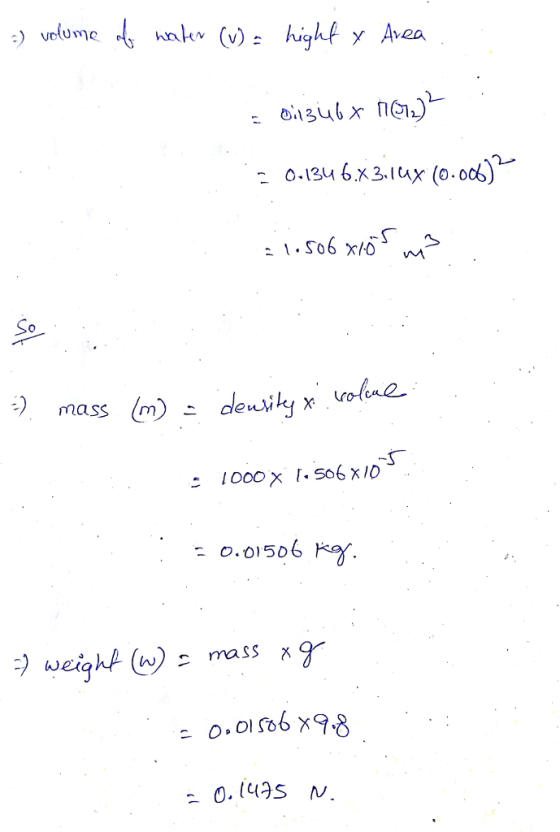 =) volume of water (v) = hight x Area
= 0.1346 x π(r₂)²
= 0.1346 x 3.14 x (0.006)²
= 1.506 x 10⁻⁵ m³
So
=) mass (m) = density x volue
= 1000 x 1.506 x 10⁻⁵
= 0.01506 kg.
=) weight (w) = mass x g
= 0.01506 x 9.8
= 0.1475 N.